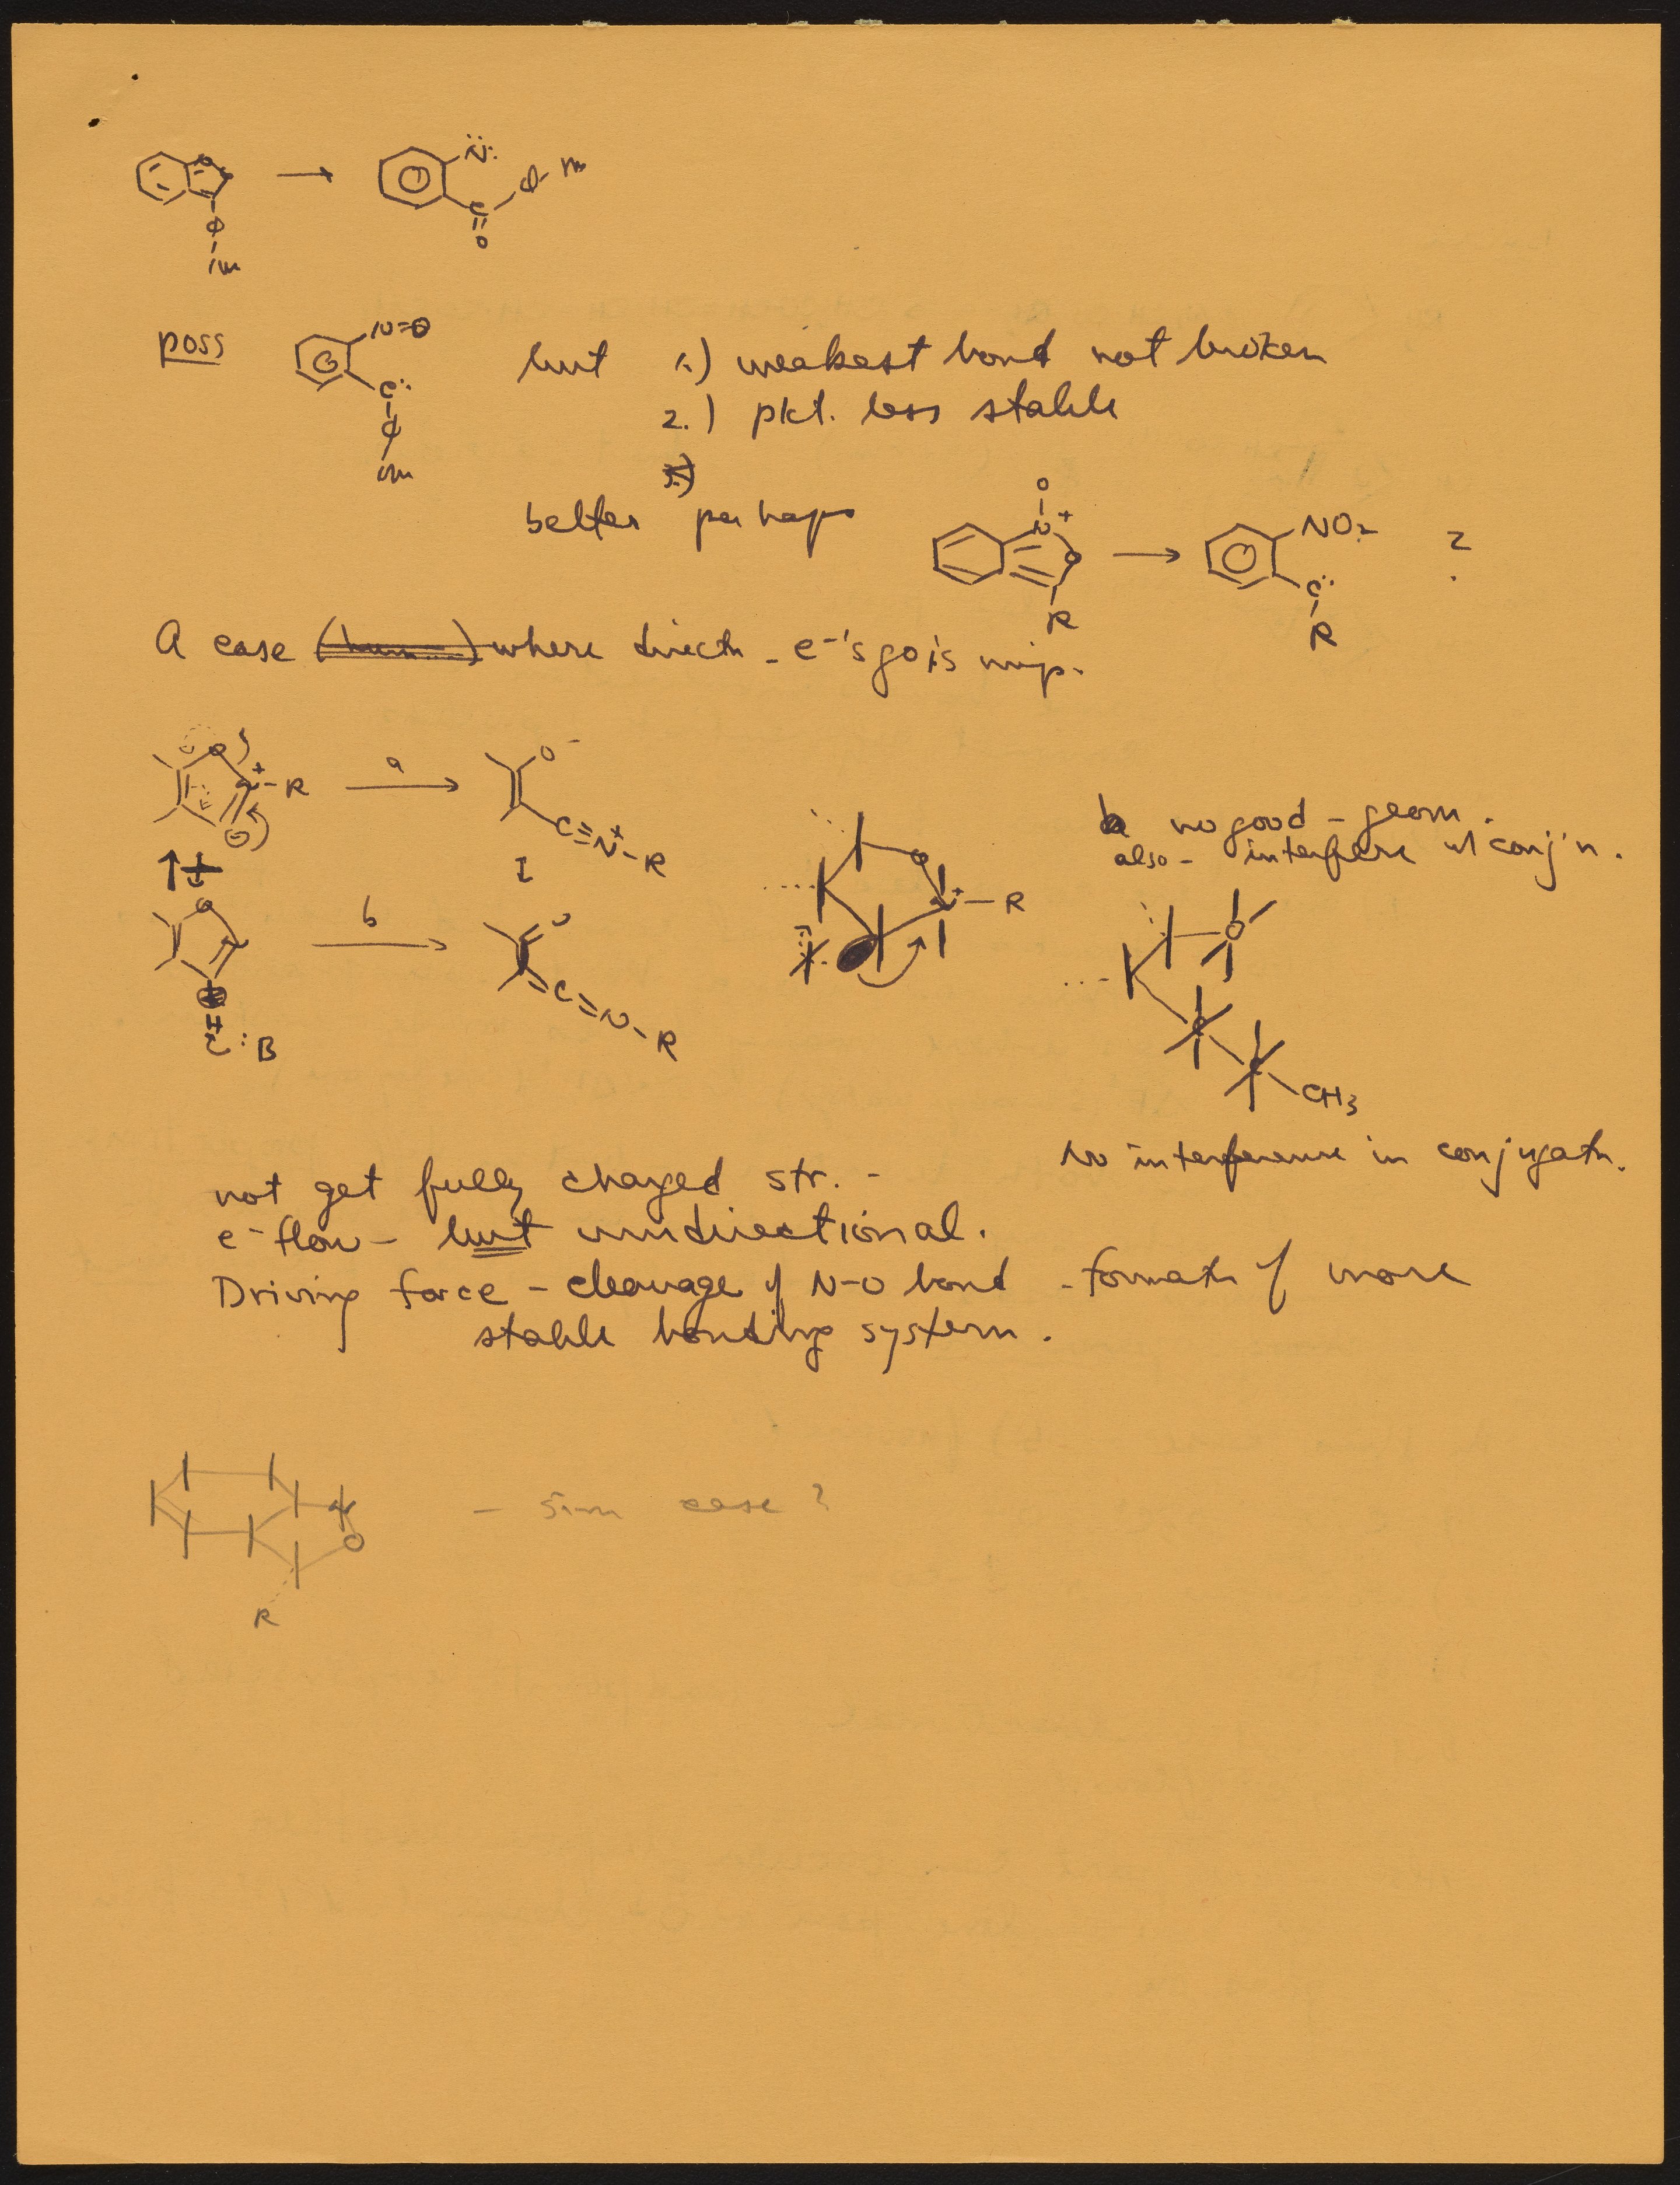 N:
C
O
poss
N=O
C:
but 1.) weakest bond not broken
2.) pkt. less stable
3.)
better perhaps
O
N+
O
R
NO2
C:
R
?
A case where directn - e-'s go is imp.
O
+
- R
a
O-
C≡N+-R
b no good - geom.
also - interfere w/ conj'n.
b
O
C=N-R
H
:B
O
+ - R
O
C
CH3
No interference in conjugatn.
not get fully charged str. -
e- flow - but unidirectional.
Driving force - cleavage of N-O bond - formatn of more
stable bonding system.
O
R
- sim case ?